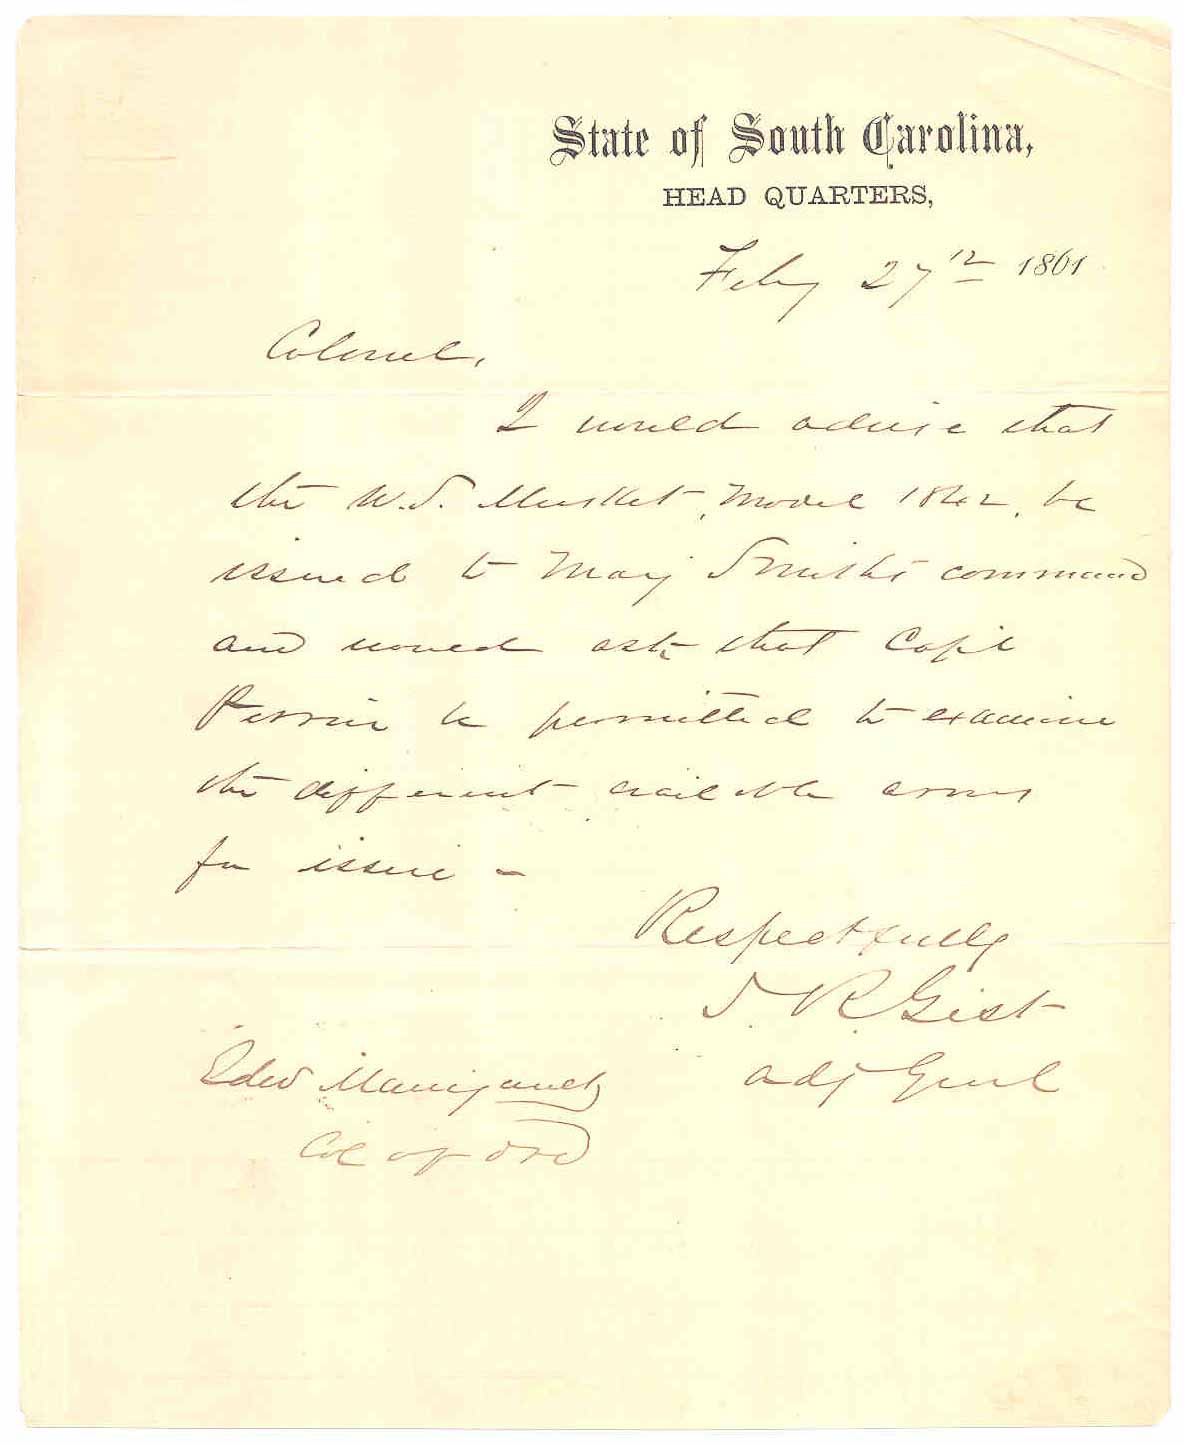 State of South Carolina,
HEAD QUARTERS,
Feby 27th 1861
Colonel,
I would advise that
the U.S. Musket, Model 1842, be
issued to Maj Smith's command
and would ask that Capt
Perrin be permitted to examine
the different available arms
for issue -
Respectfully
S. R. Gist
Adj Genl
Edw Manigault
Col of Ord